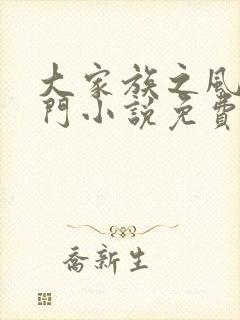 大家族之風
門小說免費
喬新生